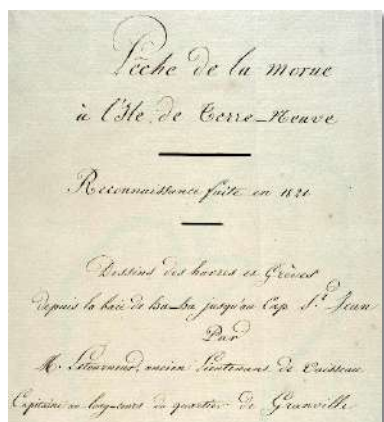 Pêche de la morue
à l'Ile de Terre-Neuve
Reconnaissance faite en 1821
Dessins des havres et Grèves
depuis la baie de Ha-Ha jusqu'au Cap St. Jean
Par
M. Letourneur, ancien Lieutenant de Vaisseau
Capitaine au long-cours du quartier de Granville